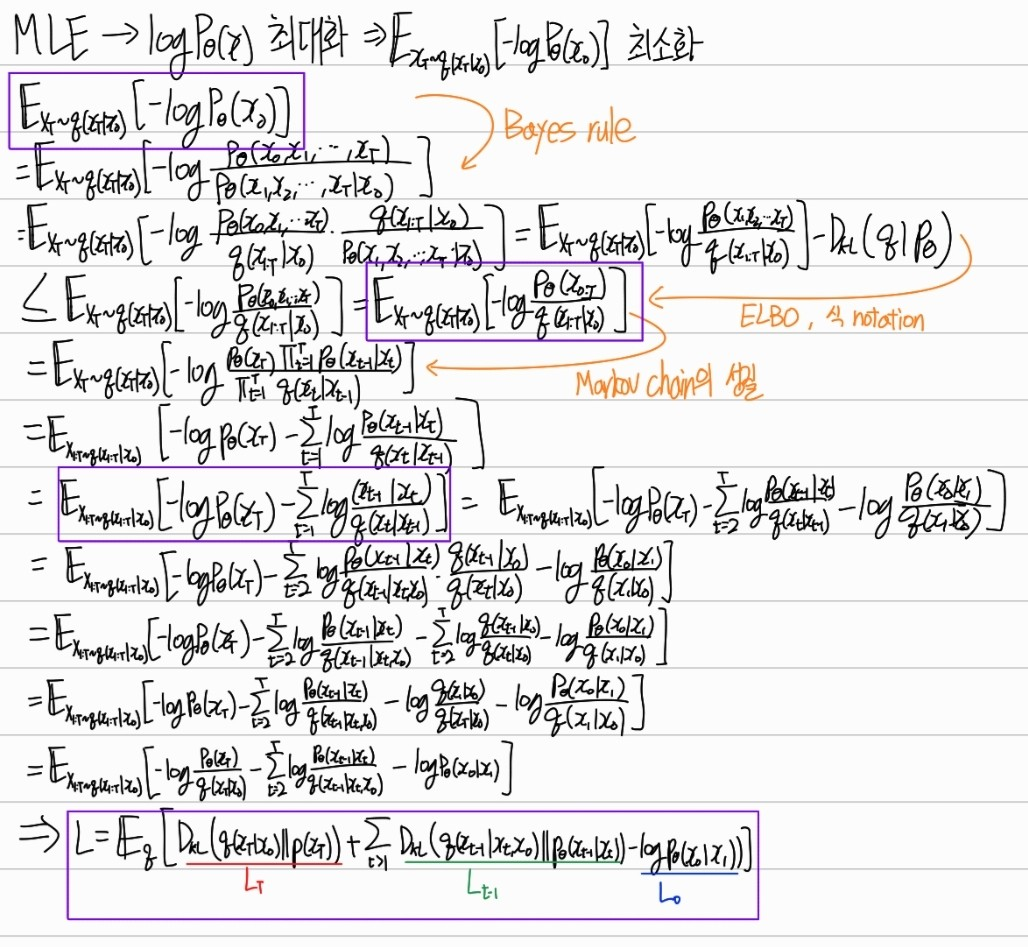 MLE → log Pθ(x) 최대화 ⇒ E_{x_T~q(x_T|x_0)}[-log Pθ(x_0)] 최소화
E_{x_T~q(x_T|x_0)}[-log Pθ(x_0)]
Bayes rule
= E_{x_T~q(x_T|x_0)}[-log Pθ(x_0,x_1,⋯,x_T) / Pθ(x_1,x_2,⋯,x_T|x_0)]
= E_{x_T~q(x_T|x_0)}[-log Pθ(x_0,x_1,⋯x_T) / q(x_{1:T}|x_0) · q(x_{1:T}|x_0) / Pθ(x_1,x_2,⋯,x_T|x_0)] = E_{x_T~q(x_T|x_0)}[-log Pθ(x_1x_2⋯x_T) / q(x_{1:T}|x_0)] - D_KL(q|Pθ)
≤ E_{x_T~q(x_T|x_0)}[-log Pθ(x_0,x_1⋯x_T) / q(x_{1:T}|x_0)] = E_{x_T~q(x_T|x_0)}[-log Pθ(x_{0:T}) / q(x_{1:T}|x_0)]
ELBO, 식 notation
= E_{x_T~q(x_T|x_0)}[-log Pθ(x_T) ∏_{t=1}^T Pθ(x_{t-1}|x_t) / ∏_{t=1}^T q(x_t|x_{t-1})]
Markov chain의 성질
= E_{x_{1:T}~q(x_{1:T}|x_0)} [-log Pθ(x_T) - ∑_{t=1}^T log Pθ(x_{t-1}|x_t) / q(x_t|x_{t-1})]
= E_{x_{1:T}~q(x_{1:T}|x_0)}[-log Pθ(x_T) - ∑_{t=1}^T log (x_{t-1}|x_t) / q(x_t|x_{t-1})] = E_{x_{1:T}~q(x_{1:T}|x_0)}[-log Pθ(x_T) - ∑_{t=2}^T log Pθ(x_{t-1}|x_t) / q(x_t|x_{t-1}) - log Pθ(x_0|x_1) / q(x_1|x_0)]
= E_{x_{1:T}~q(x_{1:T}|x_0)}[-log Pθ(x_T) - ∑_{t=2}^T log Pθ(x_{t-1}|x_t) / q(x_{t-1}|x_t,x_0) · q(x_{t-1}|x_0) / q(x_t|x_0) - log Pθ(x_0|x_1) / q(x_1|x_0)]
= E_{x_{1:T}~q(x_{1:T}|x_0)}[-log Pθ(x_T) - ∑_{t=2}^T log Pθ(x_{t-1}|x_t) / q(x_{t-1}|x_t,x_0) - ∑_{t=2}^T log q(x_{t-1}|x_0) / q(x_t|x_0) - log Pθ(x_0|x_1) / q(x_1|x_0)]
= E_{x_{1:T}~q(x_{1:T}|x_0)}[-log Pθ(x_T) - ∑_{t=2}^T log Pθ(x_{t-1}|x_t) / q(x_{t-1}|x_t,x_0) - log q(x_1|x_0) / q(x_T|x_0) - log Pθ(x_0|x_1) / q(x_1|x_0)]
= E_{x_{1:T}~q(x_{1:T}|x_0)}[-log Pθ(x_T) / q(x_T|x_0) - ∑_{t=2}^T log Pθ(x_{t-1}|x_t) / q(x_{t-1}|x_t,x_0) - log Pθ(x_0|x_1)]
⇒ L = E_q[D_KL(q(x_T|x_0)‖p(x_T)) + ∑_{t>1} D_KL(q(x_{t-1}|x_t,x_0)‖pθ(x_{t-1}|x_t)) - log Pθ(x_0|x_1))]
L_T L_{t-1} L_0